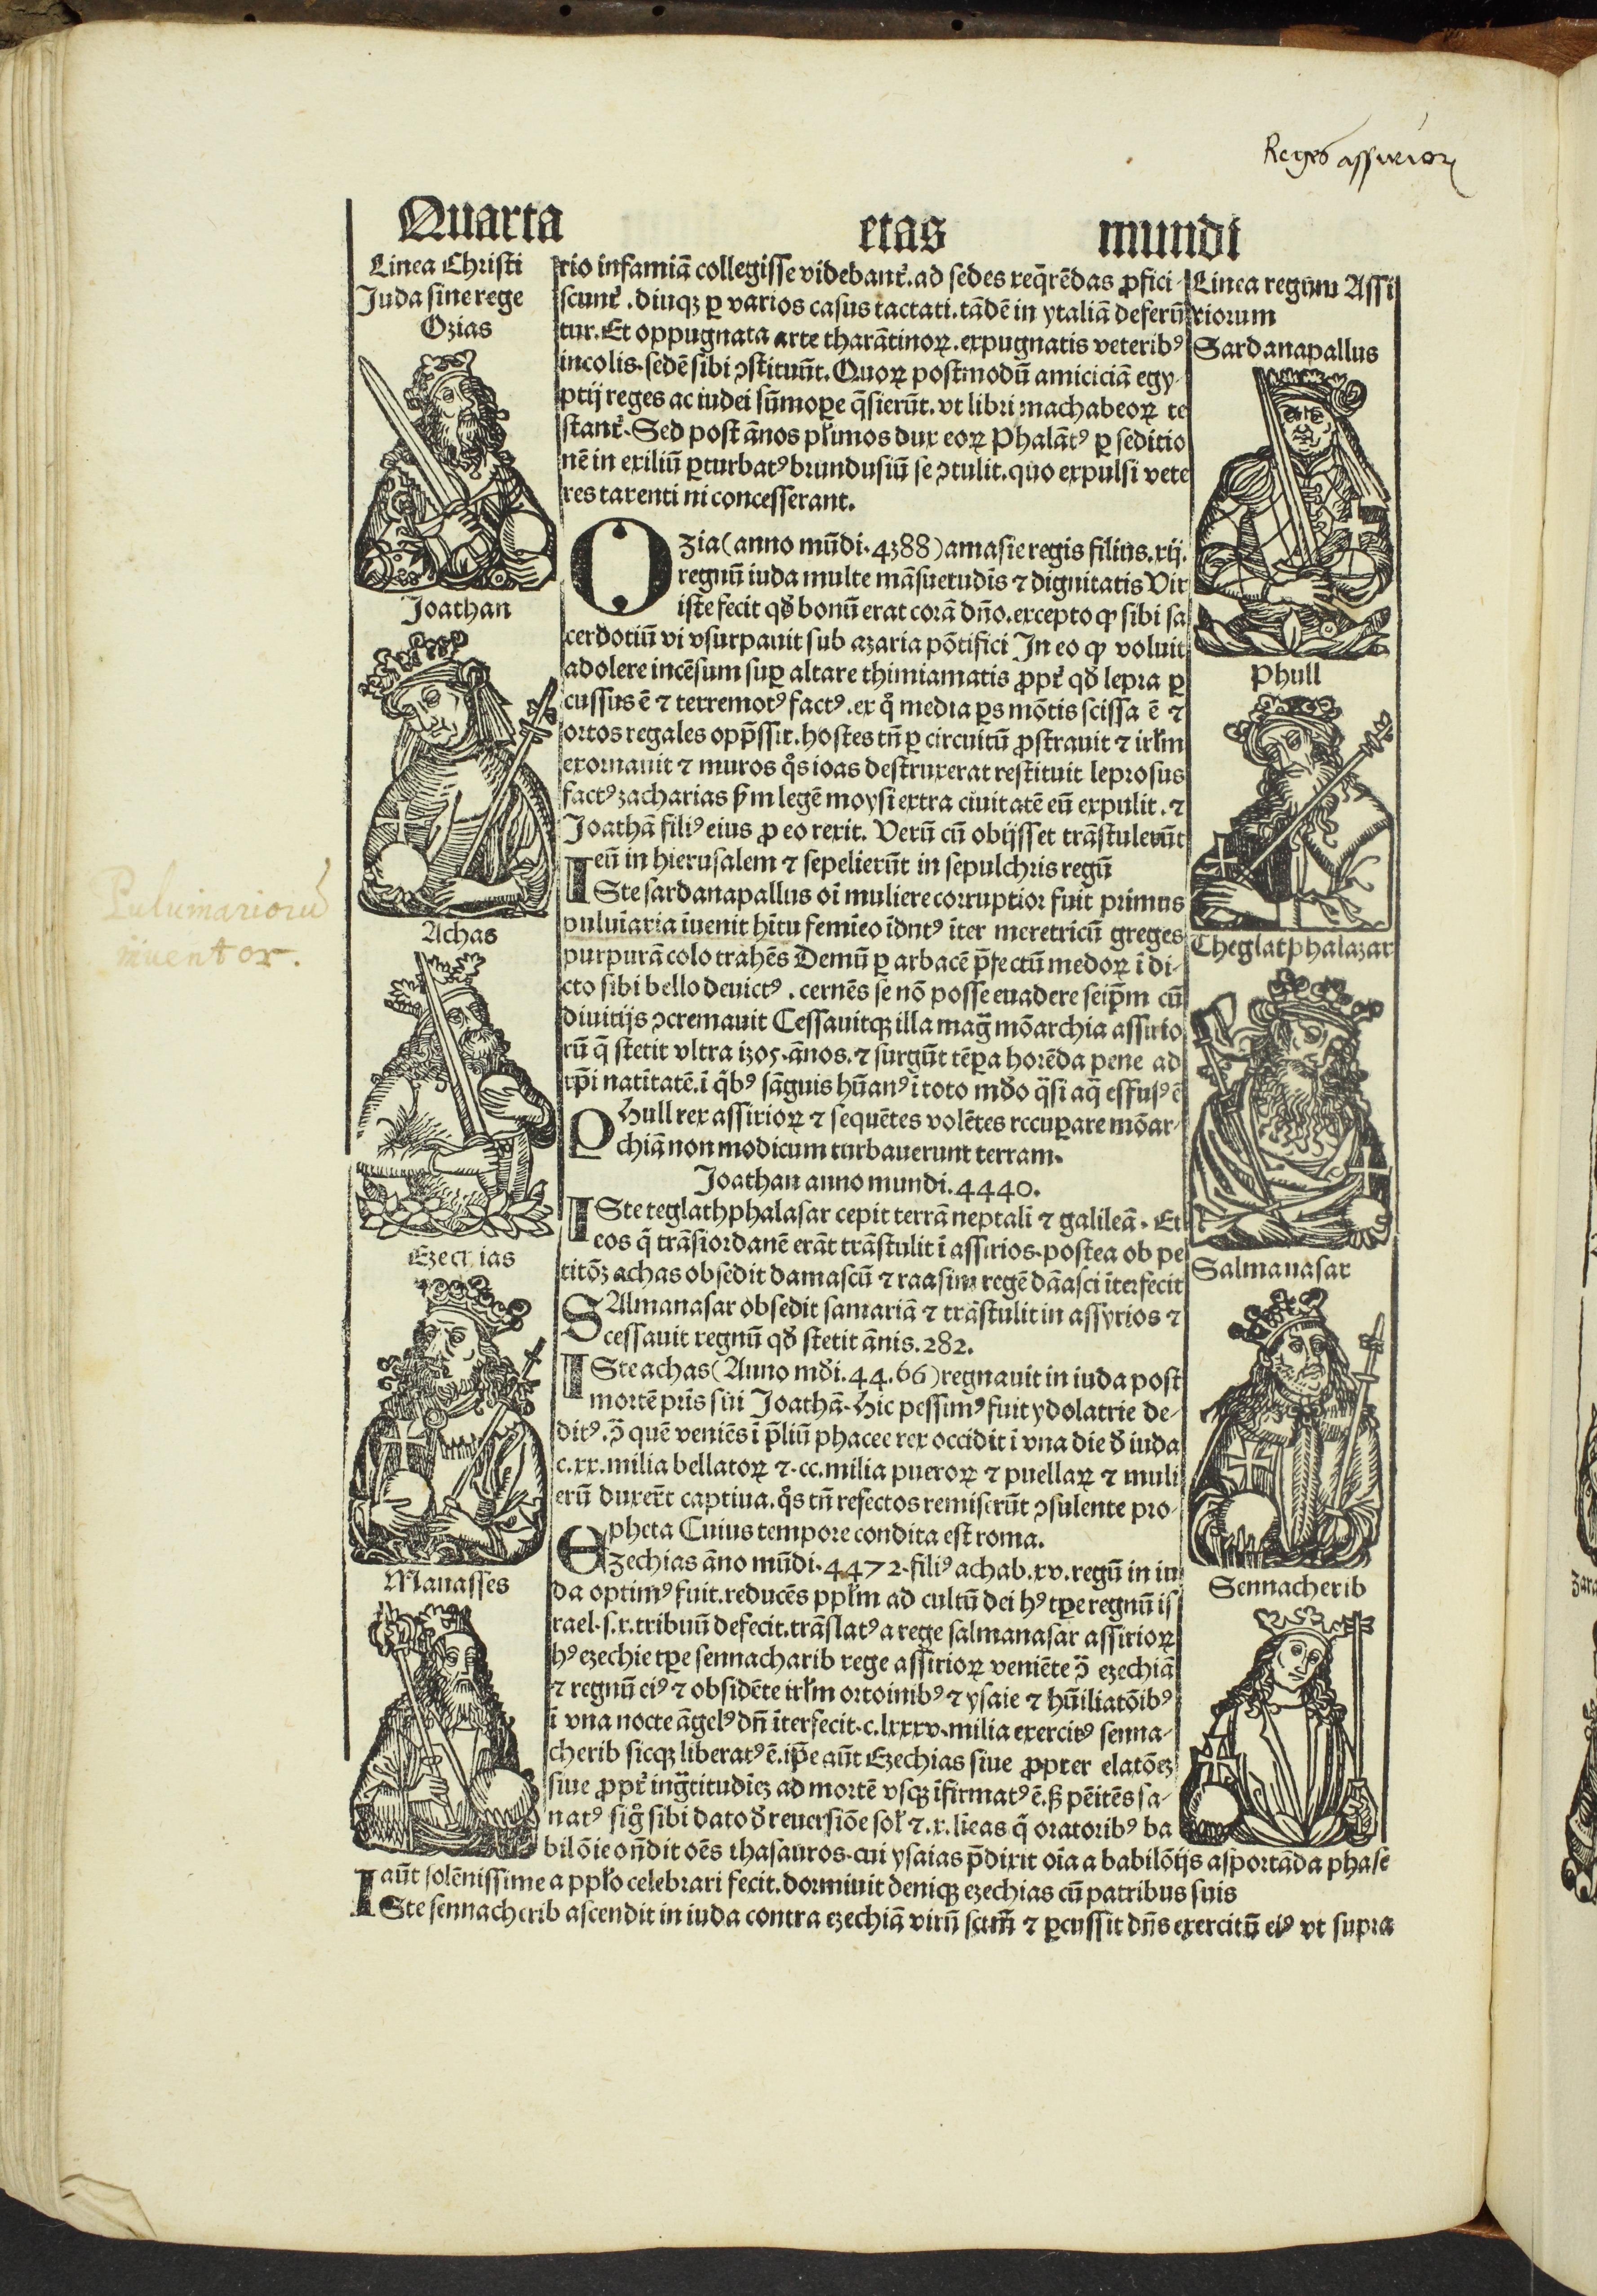 Reges assirioꝝ
Quarta etas mundi
Linea Christi
Juda sine rege
Ozias
Joathan
Achas
Ezechias
Manasses
rio infamiā collegisse videbantᷣ. ad sedes reqͥrēdas ꝓfici-
scuntᷣ. diuqꝫ ꝑ varios casus iactati. tādē in ytaliā deferū
tur. Et oppugnata arte tharātinoꝝ. expugnatis veteribꝰ
incolis. sedē sibi ↄstituūt. Quoꝝ postmodū amiciciā egy-
ptij reges ac iudei sūmoꝑe q̄sierūt. vt libri machabeoꝝ te
stantᷣ. Sed post ānos płimos dux eoꝝ Phalātꝰ ꝑ seditio
nē in exiliū ꝑturbatꝰ brundusiū se ↄtulit. quo expulsi vete
res tarenti ni concesserant.
Ozia (anno mūdi. 4388) amasie regis filius. xij.
regnū iuda multe māsuetudīs ⁊ dignitatis Vir
iste fecit qð bonū erat corā dño. excepto ꝙ sibi sa
cerdotiū vi vsurpauit sub azaria pōtifici In eo ꝙ voluit
adolere incēsum suꝑ altare thimiamatis ꝓptᷣ qð lepra ꝑ
cussus ē ⁊ terremotꝰ factꝰ. ex qͦ media ꝑs mōtis scissa ē ⁊
ortos regales opp̄ssit. hostes tñ ꝑ circuitū ꝓstrauit ⁊ irłm
exornauit ⁊ muros qͦs ioas destruxerat restituit leprosus
factꝰ zacharias ẜm legē moysi extra ciuitatē eū expulit. ⁊
Joathā filiꝰ eius ꝓ eo rexit. Verū cū obijsset trāstulerūt
eū in hierusalem ⁊ sepelierūt in sepulchris regū
ISte sardanapallus oī muliere corruptior fuit primus
puluīaria īuenit hītu femīeo īdutꝰ īter meretricū greges
purpurā colo trahēs Demū ꝑ arbacē p̄fectū medoꝝ ī di-
cto sibi bello deuictꝰ. cernēs se nō posse euadere seip̄m cū
diuitijs ↄcremauit Cessauitqꝫ illa magᷓ mōarchia assirio
rū q̄ stetit vltra 1205. ānos. ⁊ surgūt tēꝑa horēda pene ad
xp̄i natītatē. ī qͥbꝰ sāguis hūanꝰ ī toto mðo qͣsi aq̄ effusꝰ ē
Phull rex assirioꝝ ⁊ sequētes volētes rccuꝑare mōar-
chiā non modicum turbauerunt terram.
Joathan anno mundi. 4440.
ISte teglathphalasar cepit terrā neptali ⁊ galileā. Et
eos q̄ trāsiordanē erāt trāstulit ī assirios. postea ob pe
titōꝫ achas obsedit damascū ⁊ raasim regē dāasci īterfecit
SAlmanasar obsedit samariā ⁊ trāstulit in assyrios ⁊
cessauit regnū qð stetit ānis. 282.
ISte achas (Anno mði. 44.66) regnauit in iuda post
mortē pr̄is sui Joathā. Hic pessimꝰ fuit ydolatrie de-
ditꝰ. ↄ̄ quē veniēs ī p̄liū phacee rex occidit ī vna die ð iuda
c.xx. milia bellatoꝝ ⁊. cc. milia pueroꝝ ⁊ puellaꝝ ⁊ muli
erū duxer̄t captiua. qͦs tñ refectos remiserūt ↄsulente pro-
pheta Cuius tempore condita est roma.
EZechias āno mūdi. 4472. filiꝰ achab. xv. regū in iu
da optimꝰ fuit. reducēs ppłm ad cultū dei hꝰ tꝑe regnū is
rael. s. x. tribuū defecit. trāslatꝰ a rege salmanasar assirioꝝ
hꝰ ezechie tꝑe sennacharib rege assirioꝝ veniēte ↄ̄ ezechiā
⁊ regnū eiꝰ ⁊ obsidēte irłm ortoinibꝰ ⁊ ysaie ⁊ hūiliatōibꝰ
ī vna nocte āgelꝰ dñi īterfecit. c.lxxxv. milia exercitꝰ senna-
cherib sicqꝫ liberatꝰ ē. ip̄e aūt Ezechias siue ꝓpter elatōeꝫ
siue ꝓptᷣ ingͣtitudīeꝫ ad mortē vsqꝫ īfirmatꝰ ē. sꝫ pēitēs sa-
natꝰ sigͦ sibi dato ð reuersiōe soł ⁊. x. līeas qͣ oratoribꝰ ba
bilōie oñdit oēs thasauros. cui ysaias p̄dixit oīa a babilōijs asportāda phase
aūt solēnissime a ppło celebrari fecit. dormiuit deniqꝫ ezechias cū patribus suis
ISte sennacherib ascendit in iuda contra ezechiā virū scm̄ ⁊ ꝑcussit dñs exercitū eiꝰ vt supra
Linea regum Assi
riorum
Sardanapallus
Phull
Theglatphalazar
Salmanasar
Sennacherib
Puluinarioru
inuentor.